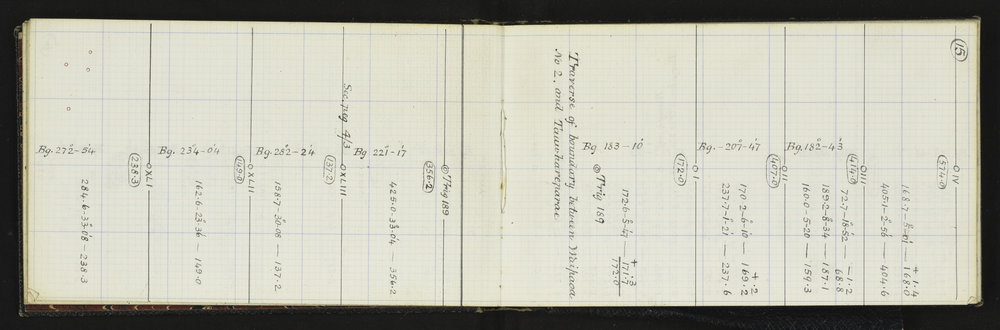 15
O IV
574·0
168·7 – 5°·01' – 168·0
+ 1·4
405·1 – 2°·56' – 404·6
O III
414·0
Bg. 182° – 43'
72·7 – 18°·52' – 68·8
– 1·2
189·2 – 8°·34' – 187·1
160·0 – 5·20 – 159·3
O II
407·0
Bg. – 207° – 47'
170·2 – 6°·10' – 169·2
+ ·2
237·7 – 1°·21' – 237·6
O I
172·0
Bg 183 – 10'
172·6 – 5°·47' – 171·7
+ ·3
172·0
⊙ Trig 189
Traverse of boundary between Waipaoa
No 2. and Tauwhareparae
⊙ Trig 189
356·2
Bg. 221° – 17'
425·0 – 33°·04' – 356·2
Sec. peg 4/3 O XLIII
137·2
Bg. 282° – 24'
158·7 – 30°·08' – 137·2
O XLII
149·0
Bg. 234° – 04'
162·6 – 23°·36' – 149·0
O XLI
238·3
Bg. 272° – 54'
284·6 – 33°·08' – 238·3